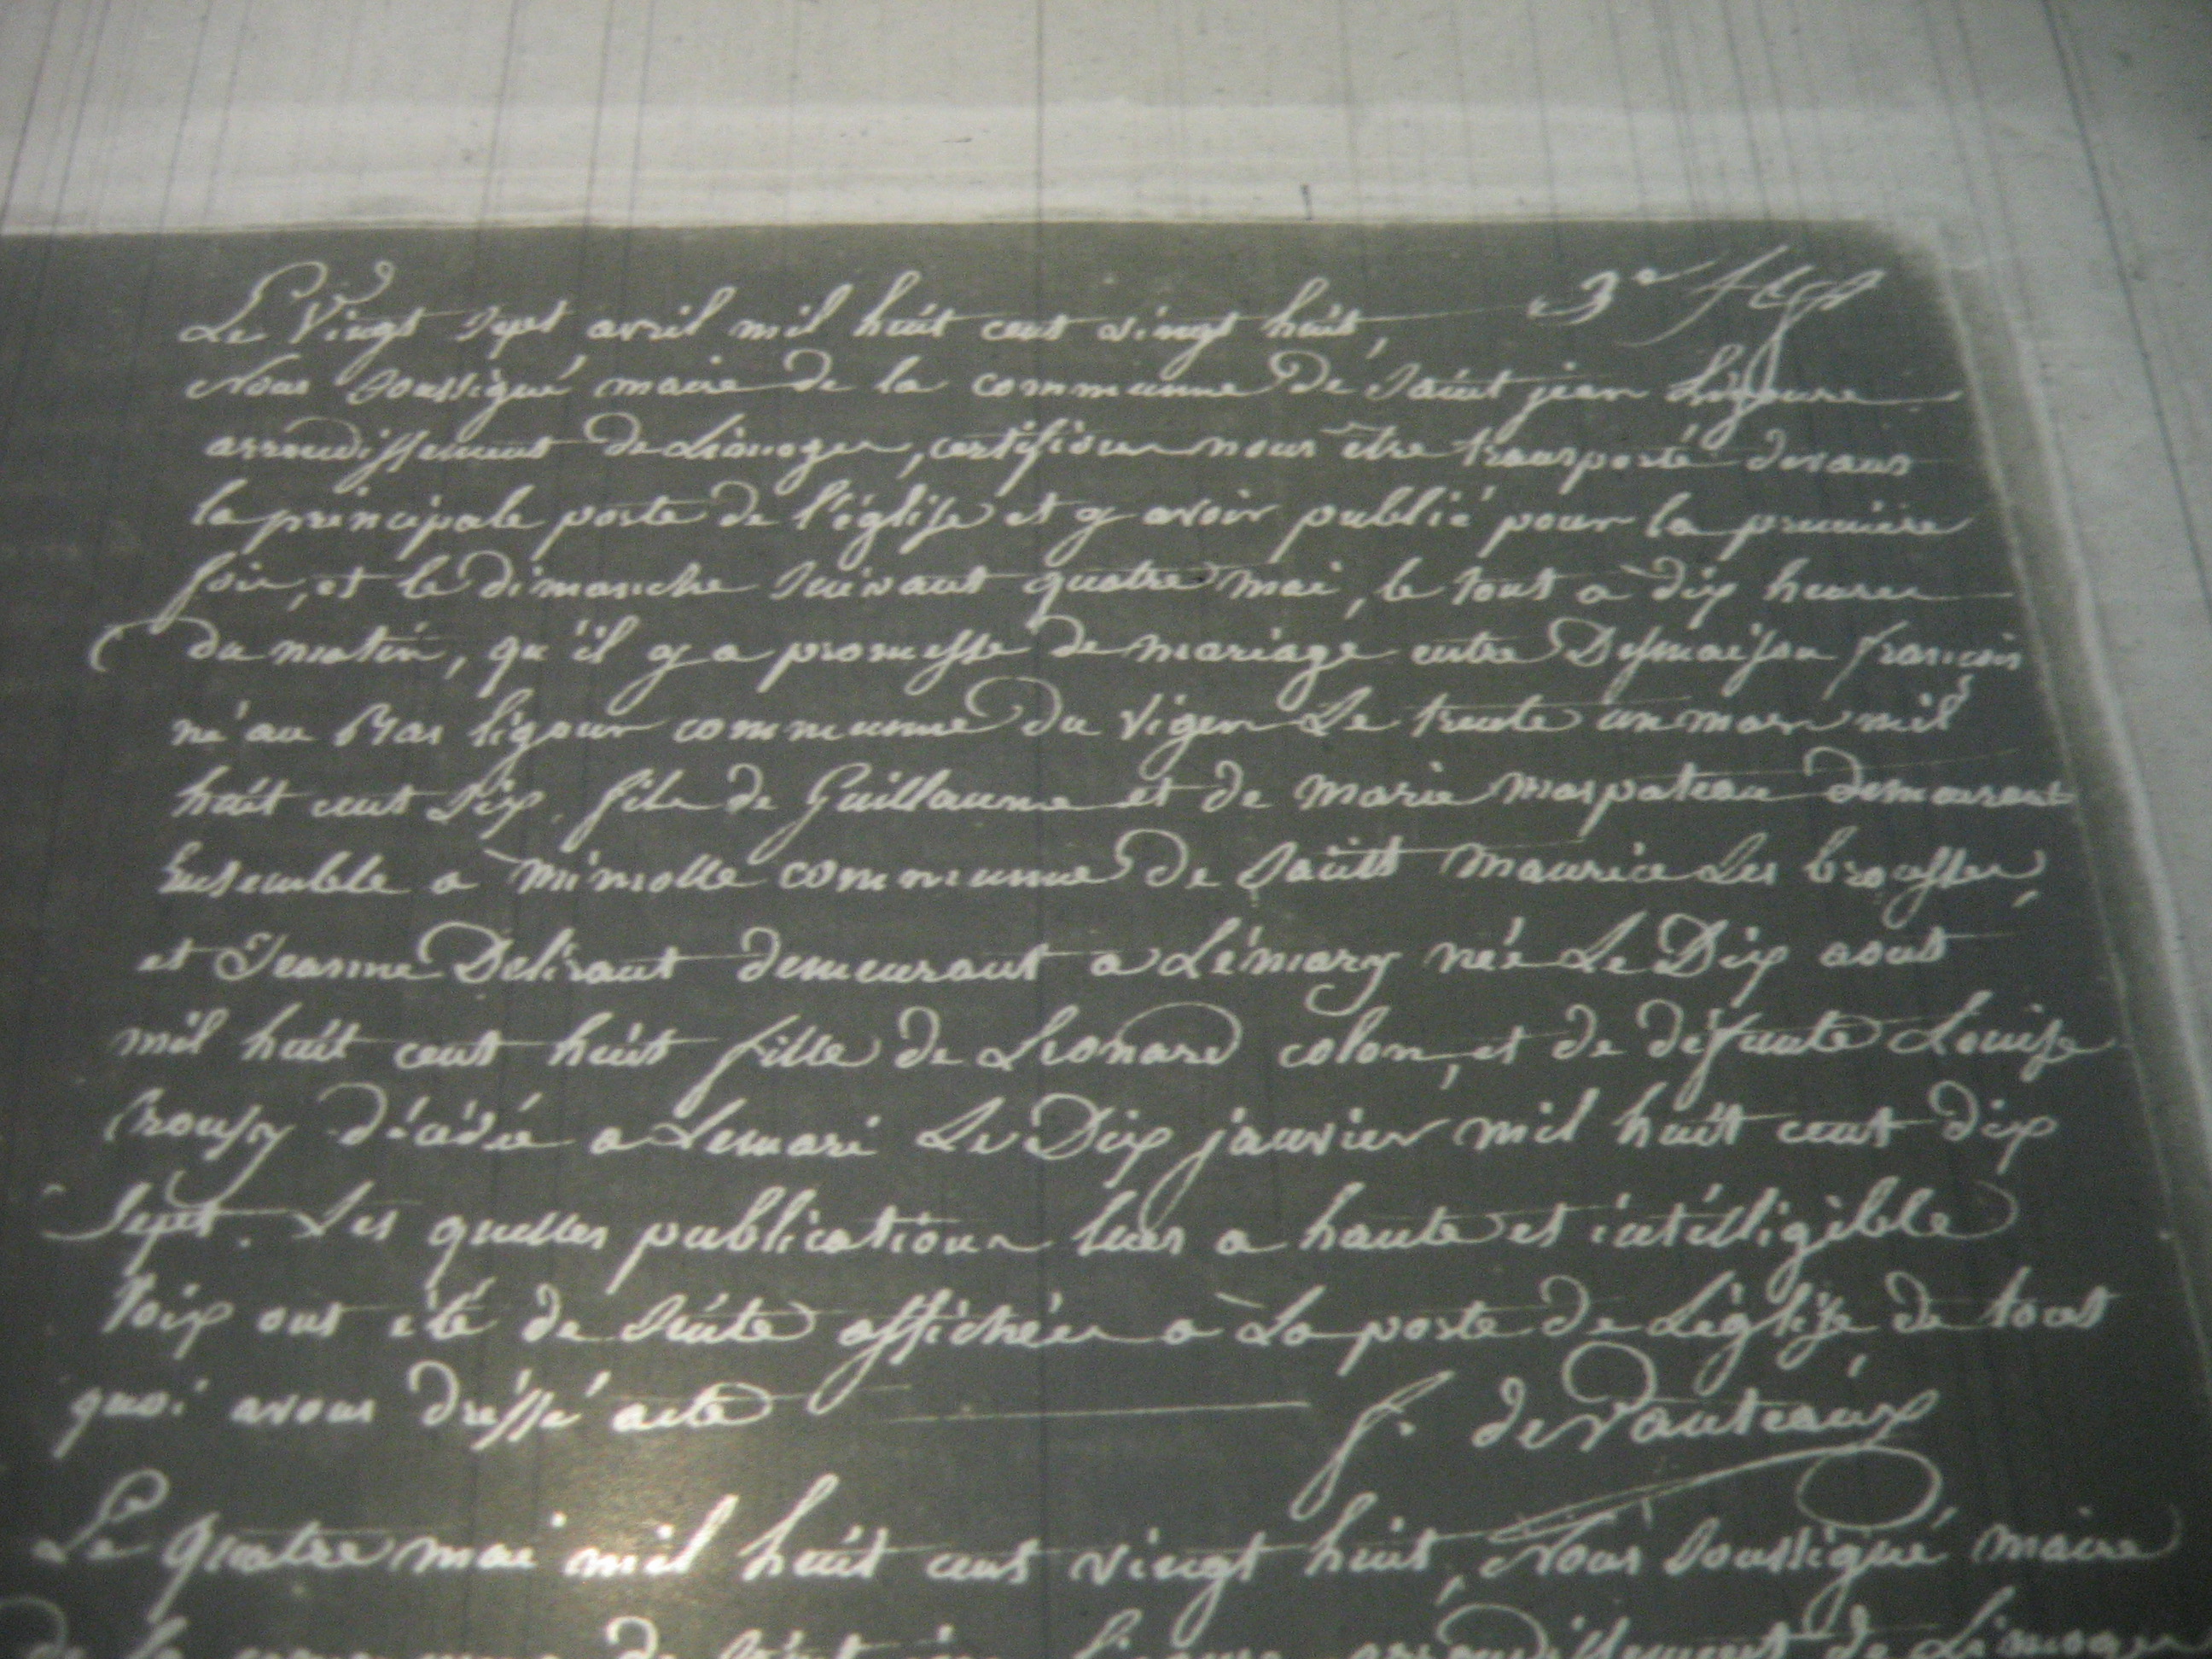 Le Vingt Sept avril mil huit cent vingt huit, 3e
Nous Soussigné maire de la commune de Saint jean Ligoure
arrondissement de Limoges, certifions nous être transporté devant
la principale porte de l'église et y avoir publié pour la première
fois, et le dimanche suivant quatre mai, le tout a dix heures
du matin, qu'il y a promesse de mariage entre Desmaison françois
né au Mas ligour commune du Vigen Le trente un mars mil
huit cent Dix, fils de Guillaume et de Marie maspateau demeurant
Ensemble a Miniolle commune de Saint Maurice Les brousses,
et Jeanne Delisant demeurant a Lémary née Le Dix aout
mil huit cent huit fille de Léonard colon, et de défunte Louise
décédée a Lemari Le Dix janvier mil huit cent dix
Sept. Les quelles publications lues a haute et intélligible
Voix ont été de Suite affichées à La porte de Léglise de tout
quoi avons dréssé acte f. de Vanteaux
Le quatre mai mil huit cent vingt huit, Nous Soussigné maire
de la commune de Saint jean Ligoure arrondissement de Limoges